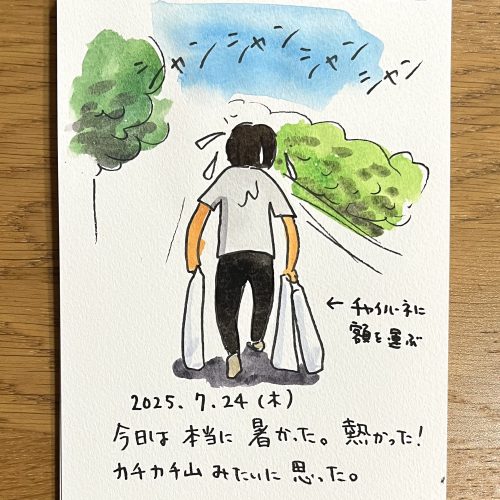 シャン シャン シャン シャン
← チャイハネに
額を運ぶ
2025. 7. 24 (木)
今日は 本当に 暑かった。熱かった!
カチカチ山 みたいに 思った。